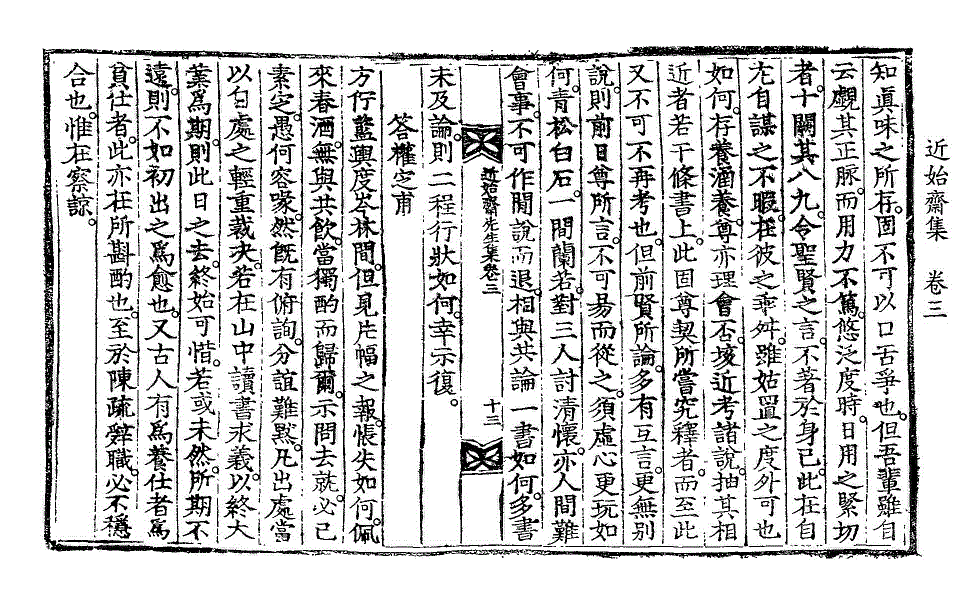 近始齋集 卷三
知眞味之所存。固不可以口舌爭也。但吾輩雖自
云覷其正脈。而用力不篤。悠泛度時。日用之緊切
者。十闕其八九。令聖賢之言。不著於身己。此在自
左自謀之不暇。在彼之乖舛。雖姑置之度外可也
如何。存養涵養。尊亦理會否。垓近考諸說。抽其相
近者若干條書上。此固尊契所嘗究釋者。而至此
又不可不再考也。但前賢所論。多有互言。更無別
說。則前日尊所言。不可易而從之。須虛心更玩如
何。靑松白石。一間蘭若。對三人討淸懷。亦人間難
會事。不可作閒說而退。相與共論一書如何。多書
近始齋先生集卷三
十三
未及論。則二程行狀如何。幸示復。
答權定甫
方佇藍輿度岑林間。但見片幅之報。悵失如何。佩
來春酒。無與共飮。當獨酌而歸爾。示問去就。必已
素定。愚何容喙。然旣有俯詢。分誼難默。凡出處當
以自處之輕重裁決。若在山中讀書求義。以終大
業爲期。則此日之去。終始可惜。若或未然。所期不
遠。則不如初出之爲愈也。又古人有爲養仕者爲
貧仕者。此亦在所斟酌也。至於陳疏辭職。必不穩
合也。惟在察諒。